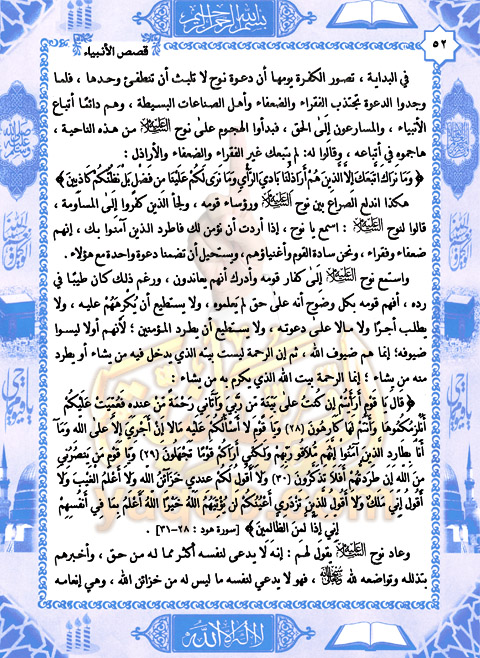 بسم الله الرحمن الرحيم
٥٢
قصص الأنبياء
في البداية ، تصور الكفرة يومها أن دعوة نوح لا تلبث أن تنطفئ وحدها ، فلما
وجدوا الدعوة تجتذب الفقراء والضعفاء وأهل الصناعات البسيطة ، وهم دائمًا أتباع
الأنبياء ، والمسارعون إلَى الحق ، فبدأوا الهجوم علىٰ نوح عليه السلام من هذه الناحية ،
هاجموه في أتباعه ، وقالوا له: لم يتبعك غير الفقراء والضعفاء والأراذل :
﴿ وَمَا نَرَاكَ اتَّبَعَكَ إِلاَّ الَّذِينَ هُمْ أَرَاذِلُنَا بَادِيَ الرَّأْيِ وَمَا نَرَىٰ لَكُمْ عَلَيْنَا مِن فَضْلٍ بَلْ نَظُنُّكُمْ كَاذِبِينَ ﴾
هكذا اندلع الصراع بين نوح عليه السلام ورؤساء قومه ، ولجأ الذين كفروا إلَى المساومة ،
قالوا لنوح عليه السلام : اسمع يا نوح ، إذا أردت أن نؤمن لك فاطرد الذين آمنوا بك ، إنهم
ضعفاء وفقراء ، ونحن سادة القوم وأغنياؤهم ، ويستحيل أن تضمنا دعوة واحدة مع هؤلاء .
واستمع نوح عليه السلام إلَى كفار قومه وأدرك أنهم يعاندون ، ورغم ذلك كان طيبًا في
رده ، أفهم قومه بكل وضوح أنه علىٰ حق لم يعلموه ، ولا يستطيع أن يُكرِهَهُمْ عليه ، ولا
يطلب أجرًا ولا مالا علىٰ دعوته ، ولا يستطيع أن يطرد المؤمنين ؛ لأنهم أولا ليسوا
ضيوفه؛ إنما هم ضيوف الله ، ثم إن الرحمة ليست بيته الذي يدخل فيه من يشاء أو يطرد
منه من يشاء ؛ إنما الرحمة بيت الله الذي يكرم به من يشاء :
﴿ قَالَ يَا قَوْمِ أَرَأَيْتُمْ إِن كُنتُ عَلَىٰ بَيِّنَةٍ مِّن رَّبِّيَ وَآتَانِي رَحْمَةً مِّنْ عِندِهِ فَعُمِّيَتْ عَلَيْكُمْ
أَنُلْزِمُكُمُوهَا وَأَنتُمْ لَهَا كَارِهُونَ (٢٨) وَيَا قَوْمِ لا أَسْأَلُكُمْ عَلَيْهِ مَالا إِنْ أَجْرِيَ إِلا عَلَى اللهِ وَمَآ
أَنَا بِطَارِدِ الَّذِينَ آمَنُوا إِنَّهُم مُّلاقُو رَبِّهِمْ وَلَكِنِّي أَرَاكُمْ قَوْمًا تَجْهَلُونَ (٢٩) وَيَا قَوْمِ مَن يَنصُرُنِي
مِنَ اللَّهِ إِن طَرَدتُّهُمْ أَفَلا تَذَكَّرُونَ (٣٠) وَلا أَقُولُ لَكُمْ عِندِي خَزَآئِنُ اللهِ وَلا أَعْلَمُ الْغَيْبَ وَلا
أَقُولُ إِنِّي مَلَكٌ وَلا أَقُولُ لِلَّذِينَ تَزْدَرِي أَعْيُنُكُمْ لَن يُؤْتِيَهُمُ اللَّهُ خَيْرًا اللَّهُ أَعْلَمُ بِمَا فِي أَنفُسِهِمْ
إِنِّي إِذًا لَّمِنَ الظَّالِمِينَ ﴾ [سورة هود : ٢٨-٣١] .
وعاد نوح عليه السلام يقول لهم : إنه لا يدعى لنفسه أكثر مما له من حق ، وأخبرهم
بتذلله وتواضعه لله عز وجل ، فهو لا يدعي لنفسه ما ليس له من خزائن الله ، وهي إنعامه
لا إله إلا الله